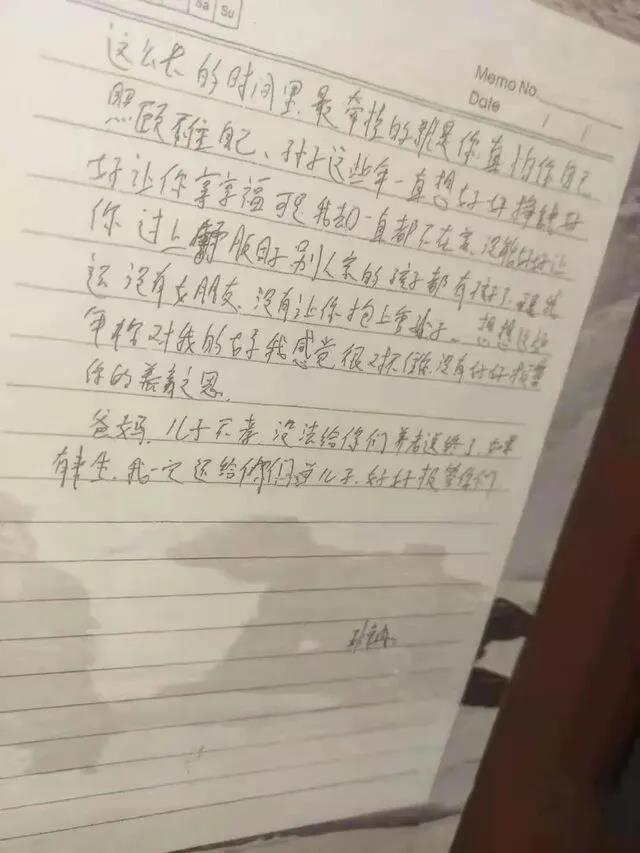 Sa Su
Memo No.
Date / /
这么长的时间里最牵挂的就是你,真怕你自己
照顾不准自己、孙子这些年一直想好好挣钱好
好让你享享福可是我却一直都不在家,没能好好让
你过上舒服日子别人家的孩子都有孩子了,
还没有女朋友,没有让你抱上重孙子。想想这些
年你对我的好我感觉很对不住你,没有好好报答
你的养育之恩。
爸妈,儿子不孝,没法给你们养老送终了,如果
有来生,我一定还给你们当儿子,好好报答你们